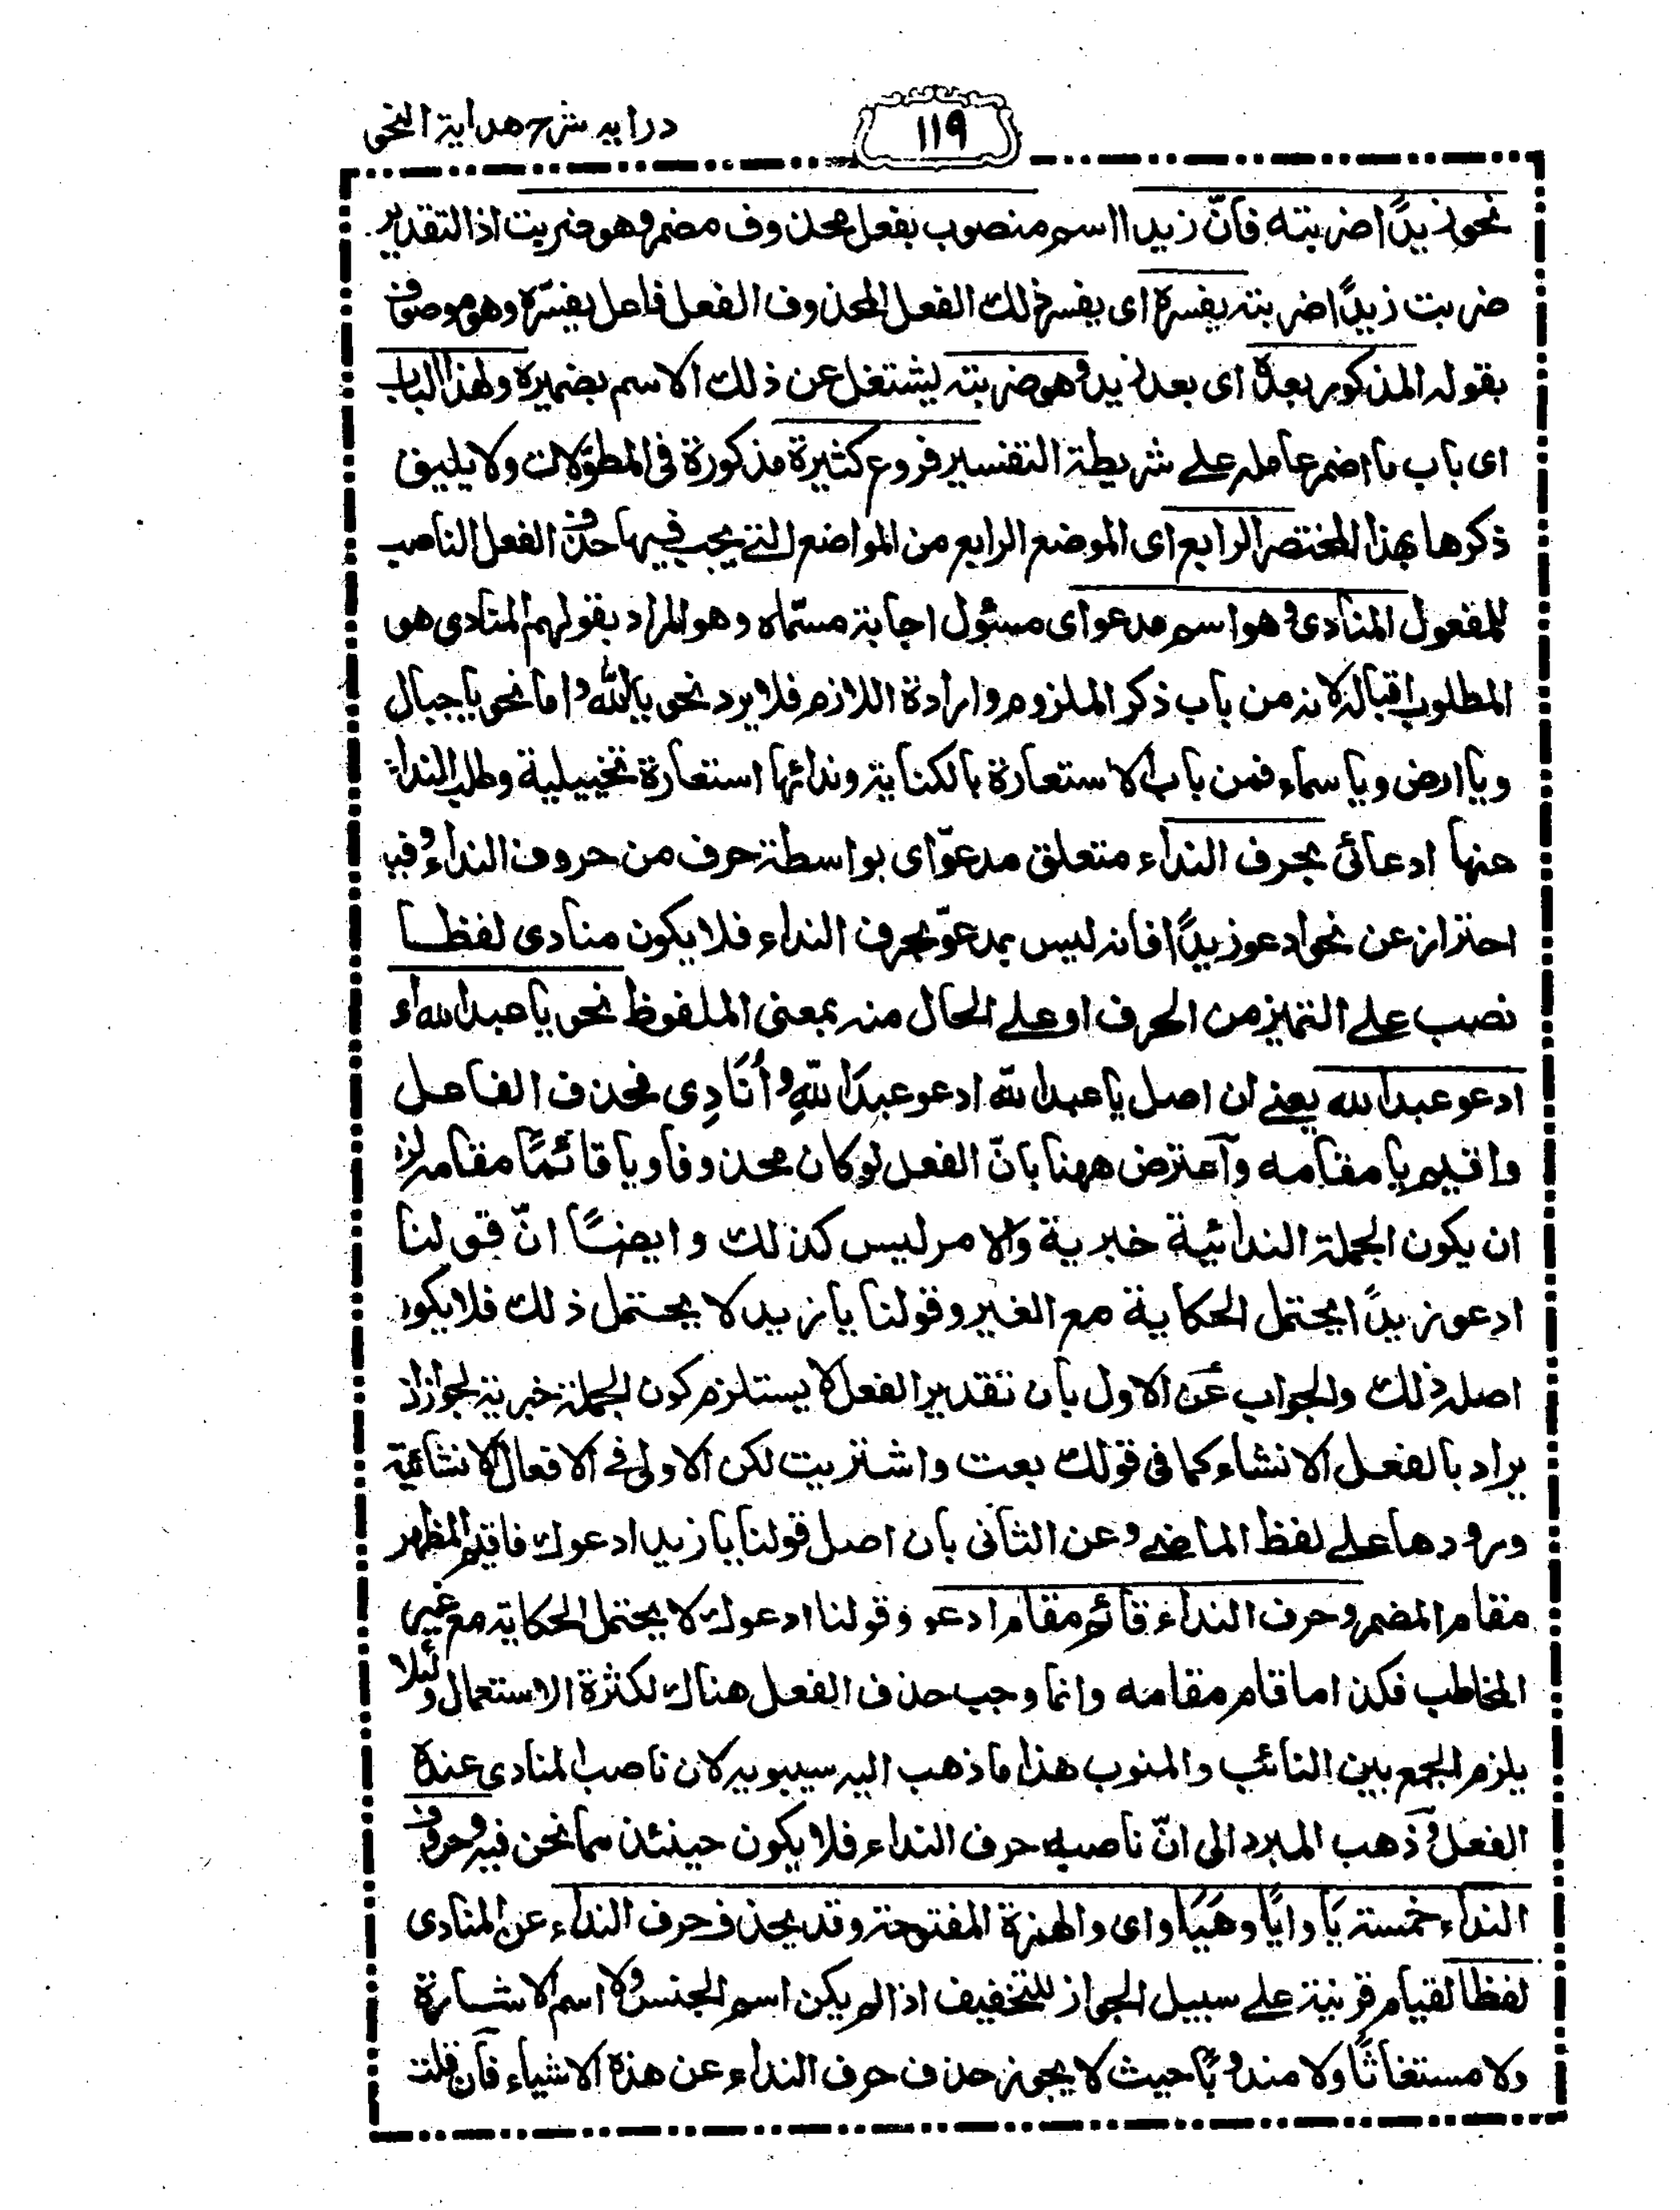 درایه شرح هداية النحو
١١٩
نحو زيدًا ضربته فانّ زيدا اسم منصوب بفعل محذوف مضمر وهو ضربت اذ التقدير
ضربت زيدًا ضربته يفسره اى يفسر ذلك الفعل المحذوف الفعل فاعل يفسّره وهو موصوف
بقوله المذكور بعده اى بعد زيد وهو ضربته يشتغل عن ذلك الاسم بضميره ولهذا الباب
اى باب ما اضمر عامله على شريطة التفسير فروع كثيرة مذكورة فى المطوّلات ولا يليق
ذكرها بهذا المختصر الرابع اى الموضع الرابع من المواضع التے يجب فيها حذف الفعل الناصب
للمفعول المنادى وهو اسم مدعو اى مسئول اجابة مسمّاه وهو المراد بقولهم المنادى هو
المطلوب اقباله لانه من باب ذكر الملزوم وارادة اللازم فلا يرد نحو يا الله واما نحو يا جبال
ويا ارض ويا سماء فمن باب الاستعارة بالكناية وندائها استعارة تخييلية وطلب النداء
منها ادعائى بحرف النداء متعلق مدعوّ اى بواسطة حرف من حروف النداء وفيه
احتراز عن نحو ادعو زيدًا فانه ليس بمدعوّ بحرف النداء فلا يكون منادى لفظا
نصب على التميز من الحرف او على الحال منه بمعنى الملفوظ نحو يا عبد الله اى
ادعو عبد الله يعنے ان اصل يا عبد الله ادعو عبدَ اللهِ و أُنَادِى فحذف الفاعل
واقيم يا مقامه وآعترض ههنا بانّ الفعل لو كان محذوفا ويا قائمًا مقامه لزم
ان يكون الجملة الندائية خبرية والامر ليس كذلك وايضًا انّ قولنا
ادعو زيدًا يحتمل الحكاية مع الغير وقولنا يا زيد لا يحتمل ذلك فلا يكون
اصله ذلك والجواب عن الاول بان تقدير الفعل لا يستلزم كون الجملة خبرية لجواز ان
يراد بالفعل الانشاء كما فى قولك بعت واشتريت لكن الاولى فى الافعال الانشائية
ورودها على لفظ الماضے وعن الثانى بان اصل قولنا يا زيد ادعوك فاقيم المظهر
مقام المضمر وحرف النداء قائم مقام ادعو وقولنا ادعوك لا يحتمل الحكاية مع غير
المخاطب فكذا ما قام مقامه وانما وجب حذف الفعل هناك لكثرة الاستعمال ولئلا
يلزم الجمع بين النائب والمنوب هذا ما ذهب اليه سيبويه لان ناصب المنادى عنده
الفعل وذهب المبرد الى انّ ناصبه حرف النداء فلا يكون حينئذ مما نحن فيه وحروف
النداء خمسة يَا واَيَا وهَيَا واى والهمزة المفتوحة وقد يحذف حرف النداء عن المنادى
لفظا لقيام قرينة على سبيل الجواز للتخفيف اذا لم يكن اسم الجنس ولا اسم الاشارة
ولا مستغاثًا ولا مندوبًا حيث لا يجوز حذف حرف النداء عن هذه الاشياء فآن قلت